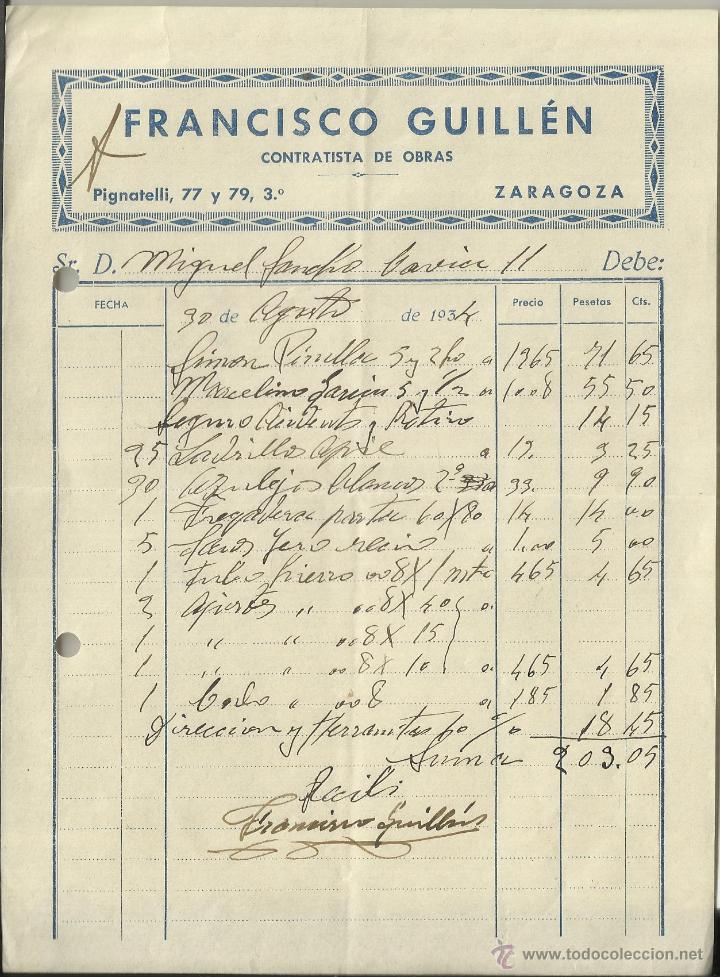 FRANCISCO GUILLÉN
CONTRATISTA DE OBRAS
Pignatelli, 77 y 79, 3.º ZARAGOZA
Sr. D. Miguel Sancho Gavin 11 Debe:
FECHA 30 de Agosto de 1934 Precio Pesetas Cts.
Simon Pinilla 5 y 2 ho a 1365 71 65
Marcelino Garcia 5 y 1/2 a 1008 55 50
Seguro Accidents y Retiro 14 15
25 Ladrillos a 13. 3 25
30 Azulejos blancos 2ª a 33. 9 90
1 Fregadera 60X80 14 14 00
5 Sacos Yeso recio a 1.00 5 00
1 tubo hierro 008X1 mtº 465 4 65
3 " 008X 40 a
1 " " 008X 15
1 " " 008X 10 a 465 4 65
1 Codo " 008 a 185 1 85
Direccion y Herramtas 10 % 18 45
Suma 203.05
Recibi
Francisco Guillén
www.todocoleccion.net